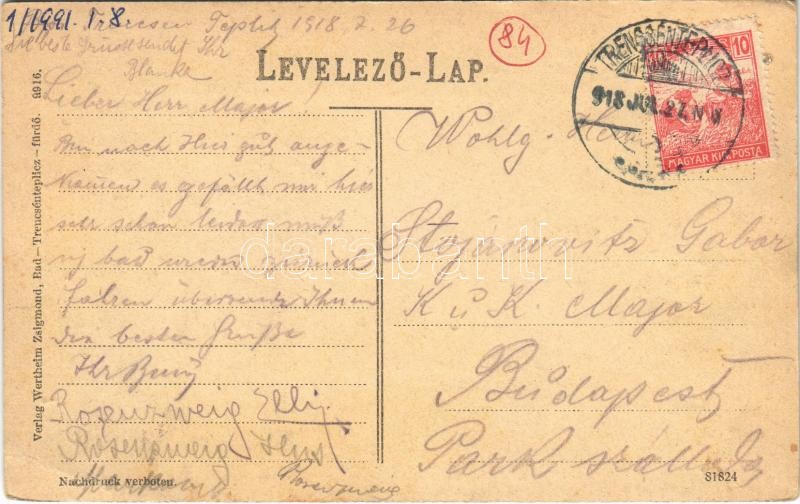 1/1991. I. 8.
84
Trencsen Teplitz 1918. 7. 26
die beste Grüsse sendet Ihr
Blanka
LEVELEZŐ-LAP.
TRENCSÉNTEPLICZ
918 JUL. 27. N 8
10
MAGYAR KIR. POSTA
Lieber Herr Major!
Bin nach Hier gut ange-
kommen es gefällt mir hier
sehr schon leider muß
ich bad wieder zurück
fahren übersende Ihnen
die besten Grüße
Ihr
Rosenzweig Elli
Rosenzweig
Rosenzweig
Wohlg. Herrn
Stojanovitz Gabor
K u K. Major
Budapest
Park szálloda
Verlag Wertheim Zsigmond, Bad-Trencsénteplicz-fürdő. a916.
Nachdruck verboten.
81824
darabanth